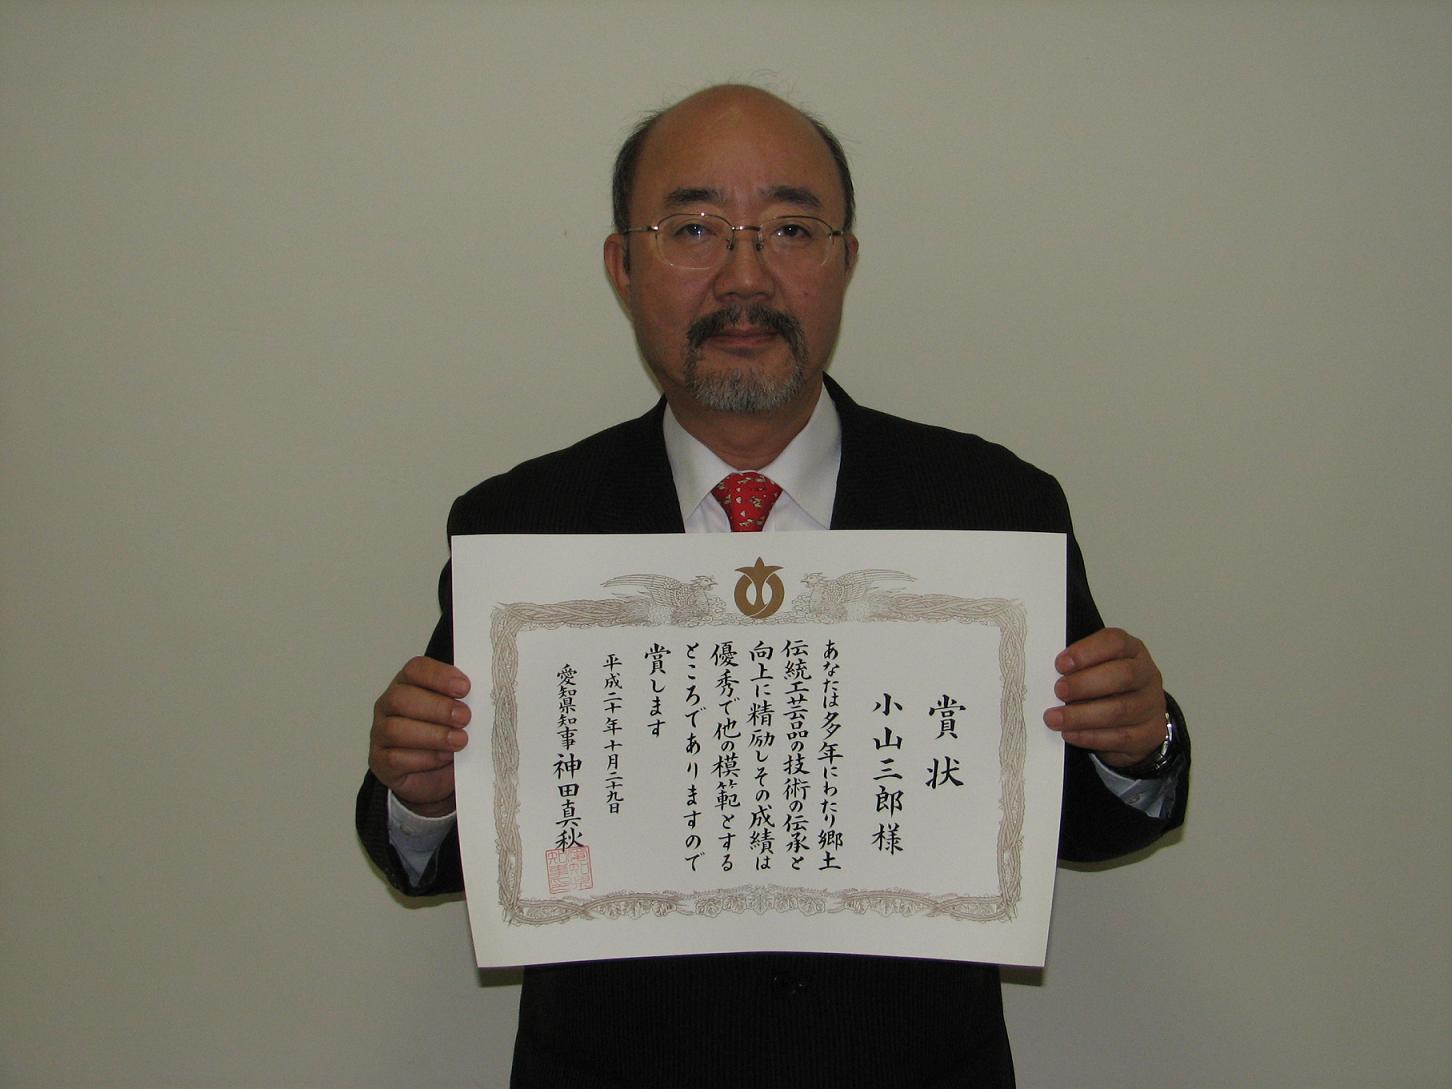 賞状
小山三郎様
あなたは多年にわたり郷土
伝統工芸品の技術の伝承と
向上に精励しその成績は
優秀で他の模範とする
ところでありますので
賞します
平成二十年十月二十九日
愛知県知事 神田真秋
愛知県知事之印